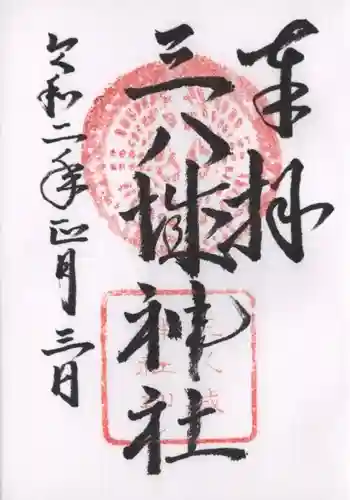 奉拝
三八城神社
令和二年正月三日